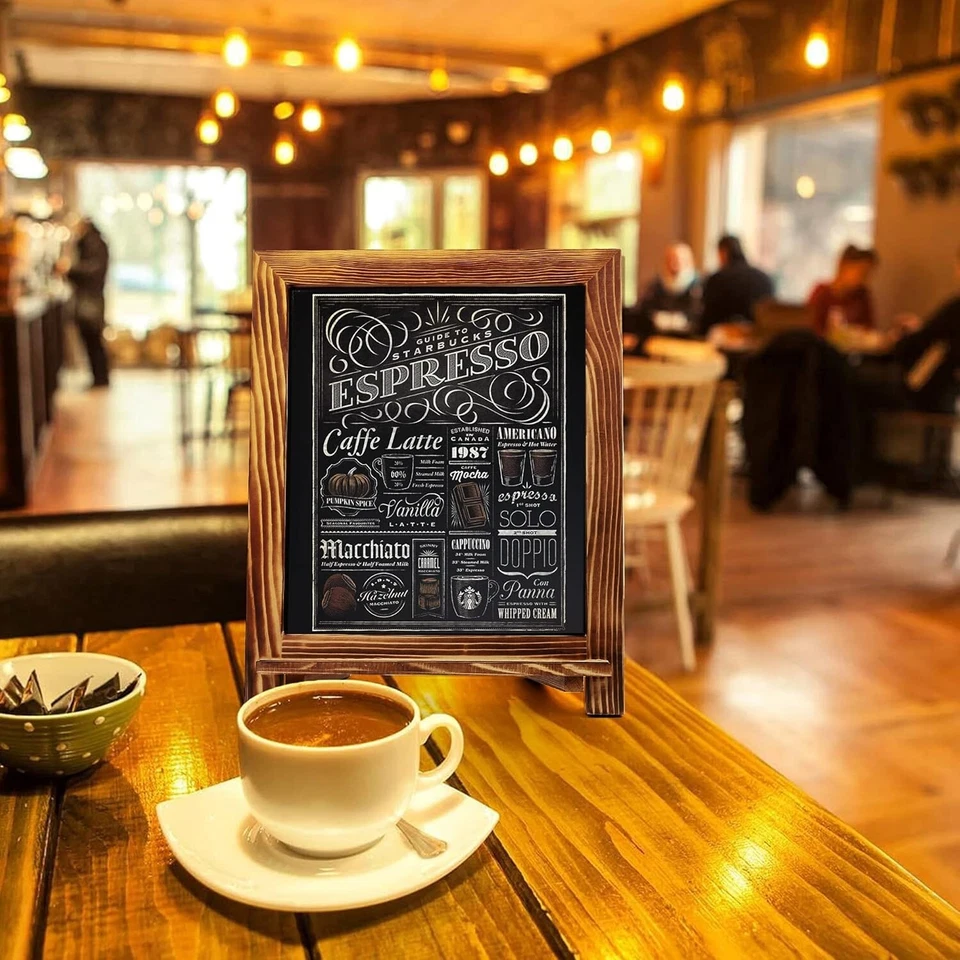 GUIDE TO
STARBUCKS
ESPRESSO
Caffe Latte
Milk Foam
Steamed Milk
Fresh Espresso
PUMPKIN SPICE
SEASONAL FAVOURITES
Vanilla
LATTE
ESTABLISHED
IN
CANADA
1987
CAFFE
Mocha
AMERICANO
Espresso & Hot Water
espresso
1ST SHOT
SOLO
2ND SHOT
DOPPIO
Macchiato
Half Espresso & Half Foamed Milk
Hazelnut
MACCHIATO
CARAMEL
MACCHIATO
CAPPUCCINO
Milk Foam
Steamed Milk
Espresso
Con
Panna
ESPRESSO WITH
WHIPPED CREAM